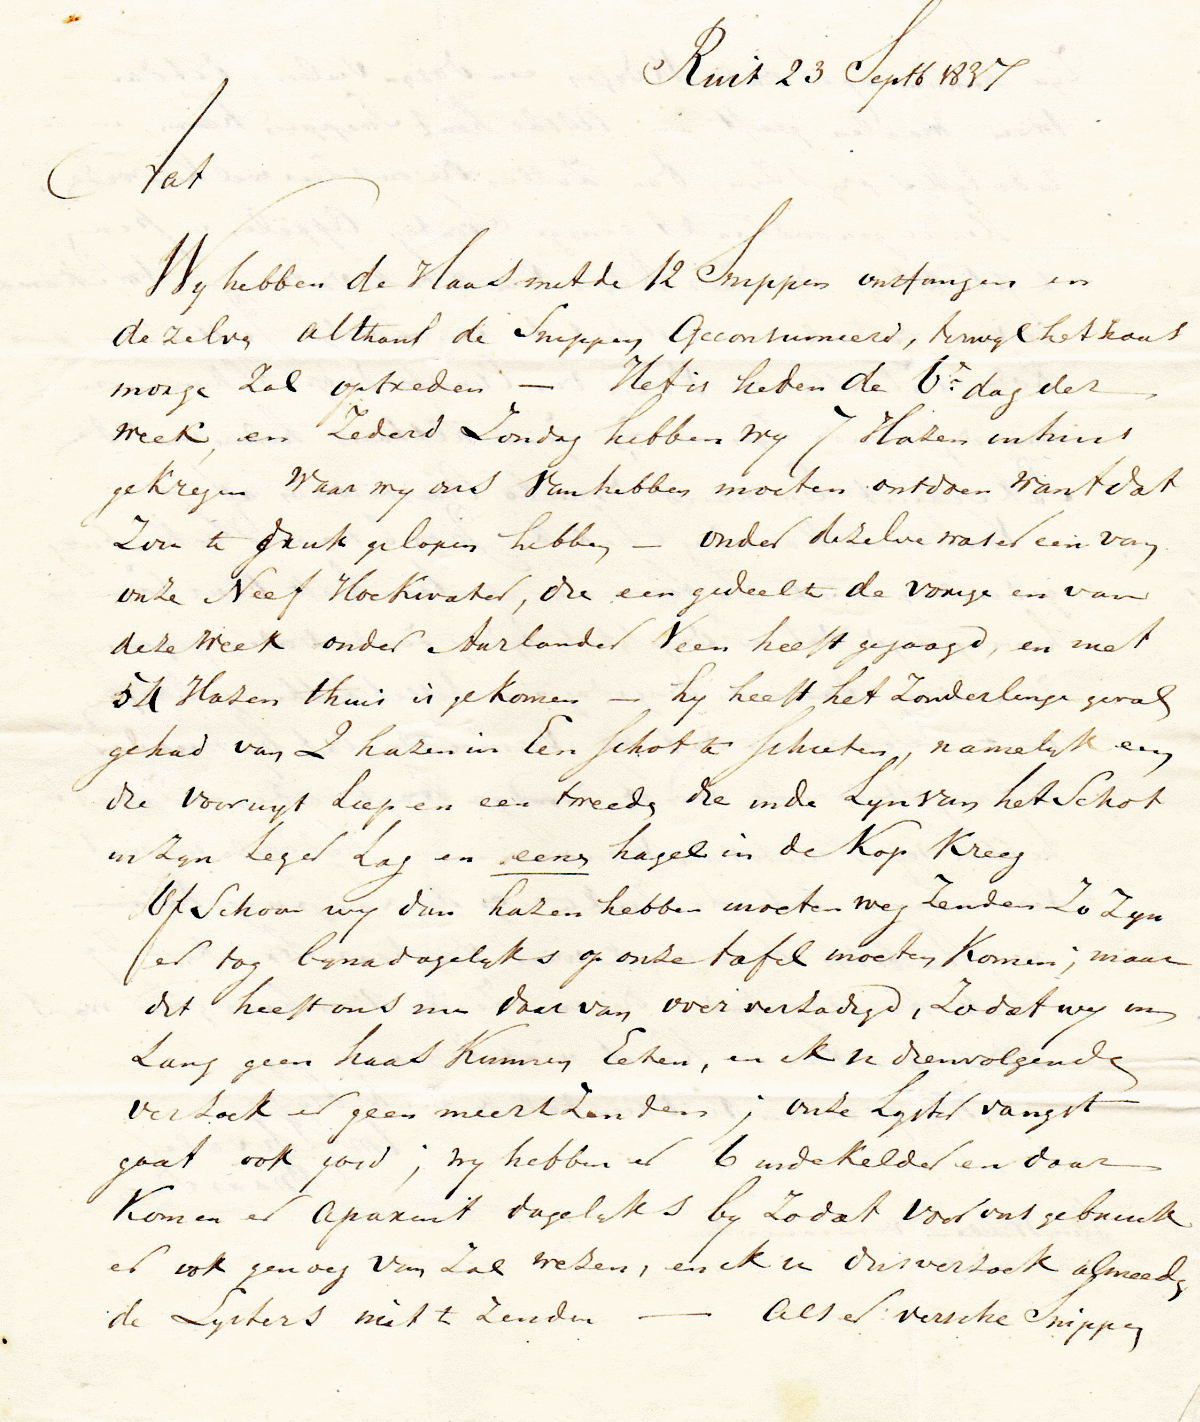 Ruit 23 Septb 1837
Tat
Wy hebben de Haas met de 12 Snippen ontfangen en
dezelve althans de Snippen geconsumeerd, terwyl het haas
morge zal optreden — Het is heden de 6e dag der
week, en zederd Zondag hebben wy 7 Hazen in huis
gekregen waar wy ons van hebben moeten ontdoen want dat
zou te druk gelopen hebben — onder dezelve water een van
onze Neef Hoekwater, die een gedeelte de vorige en van
deze week onder Aarlander Veen heeft gejaagd, en met
54 Hazen thuis is gekomen — hy heeft het zonderlinge geval
gehad van 2 hazen in Een schot te schieten, namelyk een
die vooruyt Liep en een tweede die in de Lyn van het Schot
in zyn Leger Lag en eene hagel in de Kop Kreeg
Of Schoon wy dan hazen hebben moeten weg zenden zo zyn
er tog byna dagelyks op onze tafel moeten Komen; maar
dit heeft ons nu daar van over verzadigd, zodat wy in
Lang geen haas Kunnen Eeten, en ik u dienvolgende
verzoek er geen meer t zenden; onze Lyster vangst
gaat ook goed; wy hebben er 6 in de Kelder en daar
Komen er aparent dagelyks by zodat voor ons gebruik
er ook genoeg van zal wezen, en ik u dus verzoek almeede
de Lysters niet te zenden — als er versche Snippen